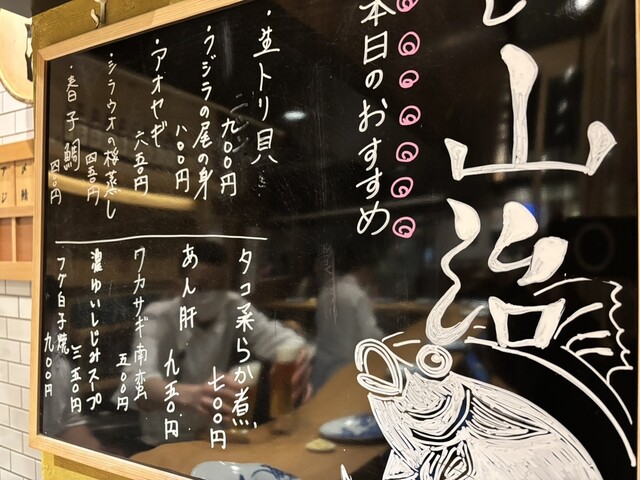 山治
本日のおすすめ
・生トリ貝
九〇〇円
・クジラの尾の身
八〇〇円
・アオヤギ
六五〇円
・シラウオの桜蒸し
四五〇円
・春子鯛
タコ柔らか煮
七〇〇円
あん肝
九五〇円
ワカサギ南蛮
五〇〇円
濃ゆいしじみスープ
三五〇円
フグ白子焼
九〇〇円